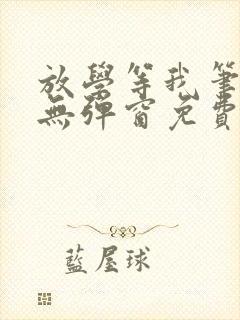 放學等我筆
無彈窗免費
藍屋球